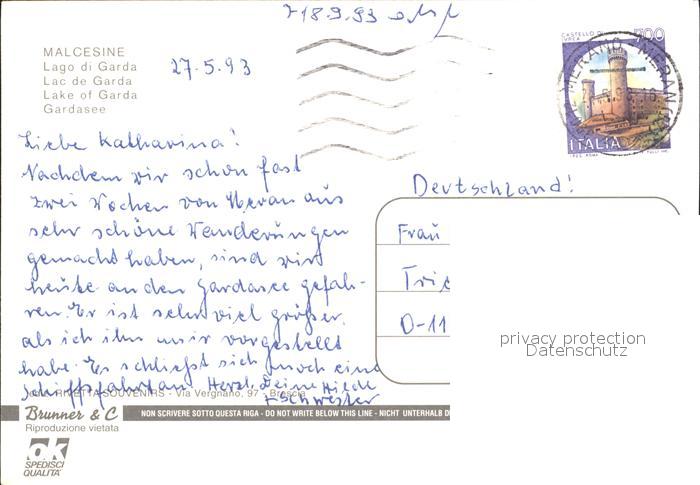 718.9.93
MALCESINE
Lago di Garda
Lac de Garda
Lake of Garda
Gardasee
27.5.93
CASTELLO DI IVREA
700
ITALIA
MERANO MERAN
Liebe Katharina!
Nachdem wir schon fast
zwei Wochen von Meran aus
sehr schöne Wanderungen
gemacht haben, sind wir
heute an den Gardasee gefah-
ren. Er ist sehr viel größer,
als ich ihn mir vorgestellt
habe. Es schließt sich noch eine
Schiffsfahrt an. Herzl. Deine Hilde
+ Schwester
Deutschland!
Frau
Trie
D-11
privacy protection
Datenschutz
SOUVENIRS - Via Vergnano, 97 - Brescia
Brunner & C
NON SCRIVERE SOTTO QUESTA RIGA - DO NOT WRITE BELOW THIS LINE - NICHT UNTERHALB D
Riproduzione vietata
ok
SPEDISCI
QUALITA'